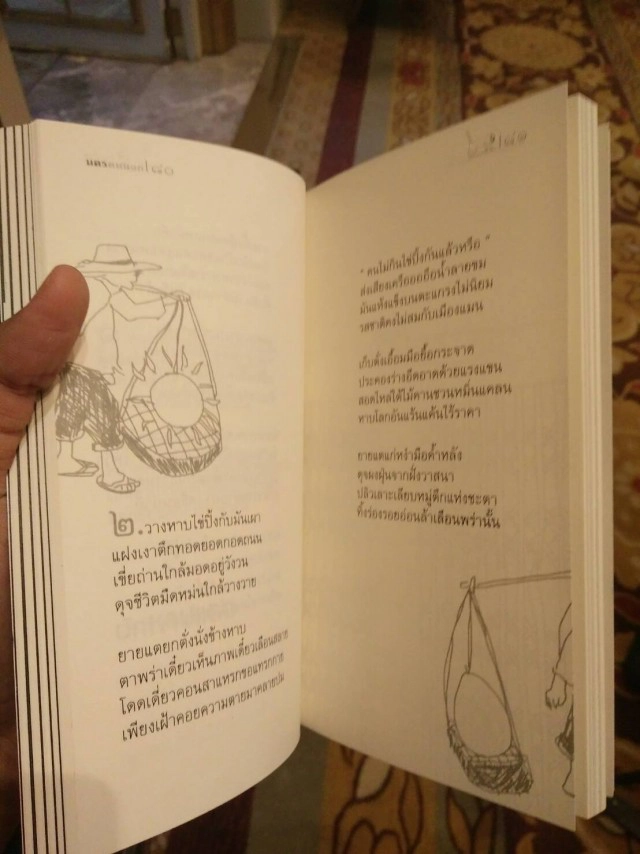 ๒. วางหาบไข่ปิ้งกับมันเผา
แฝงเงาตึกทอดยอดกอดถนน
เขี่ยถ่านใกล้มอดอยู่วังวน
ดุจชีวิตมืดหม่นใกล้วางวาย
ยายแตยกตั่งนั่งข้างหาบ
ตาพร่าเดี๋ยวเห็นภาพเดี๋ยวเลือนสลาย
โดดเดี่ยวคอนสาแหรกขอแทรกกาย
เพียงเฝ้าคอยความตายมาคลายปม
" คนไม่กินไข่ปิ้งกันแล้วหรือ "
ส่งเสียงเครือออดอือน้ำลายขม
มันแห้งแข็งบนตะแกรงไม่นิยม
รสชาติคงไม่สมกับเมืองแมน
เก็บตั่งเอื้อมมือยื้อกระจาด
ประคองร่างอืดอาดด้วยแรงแขน
สอดไหล่ใต้ไม้คานซวนหมิ่นแคลน
หาบโลกอันแร้นแค้นไร้ราคา
ยายแตแก่หง่ำมือค้ำหลัง
ดุจผงฝุ่นจากฝั่งวาสนา
ปลิวเลาะเลียบหมู่ตึกแห่งชะตา
ทิ้งร่องรอยอ่อนล้าเลือนพร่านั้น